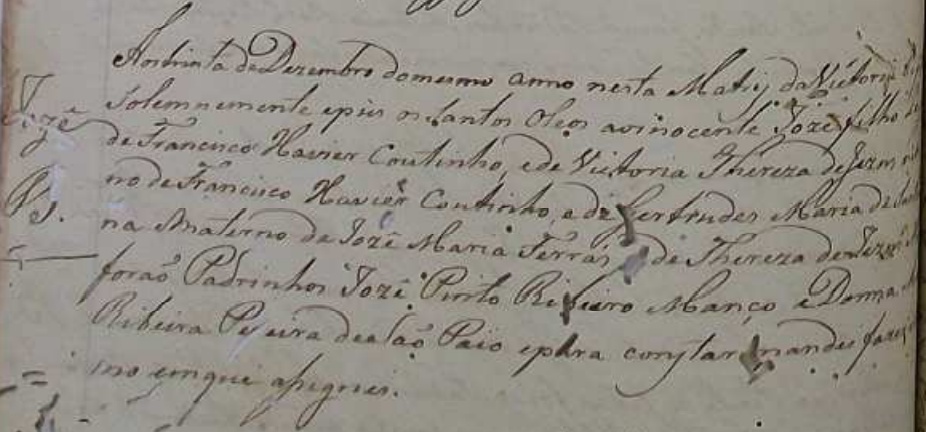 Aos trinta de Dezembro do mesmo anno nesta Matriz da Victoria
Jozé
solemnemente e pus os Santos Oleos ao inocente Jozé filho
de Francisco Xavier Coutinho, e de Victoria Thereza de Jezus
no de Francisco Xavier Coutinho, e de Gertrudes Maria de
B.
na Materno de Jozé Maria Ferrás de Thereza de Jezus
foraõ Padrinhos Jozé Pinto Ribeiro Manço e Donna
Ribeira Pereira de São Paio e para constar mandei fazer
mo em que asignei.